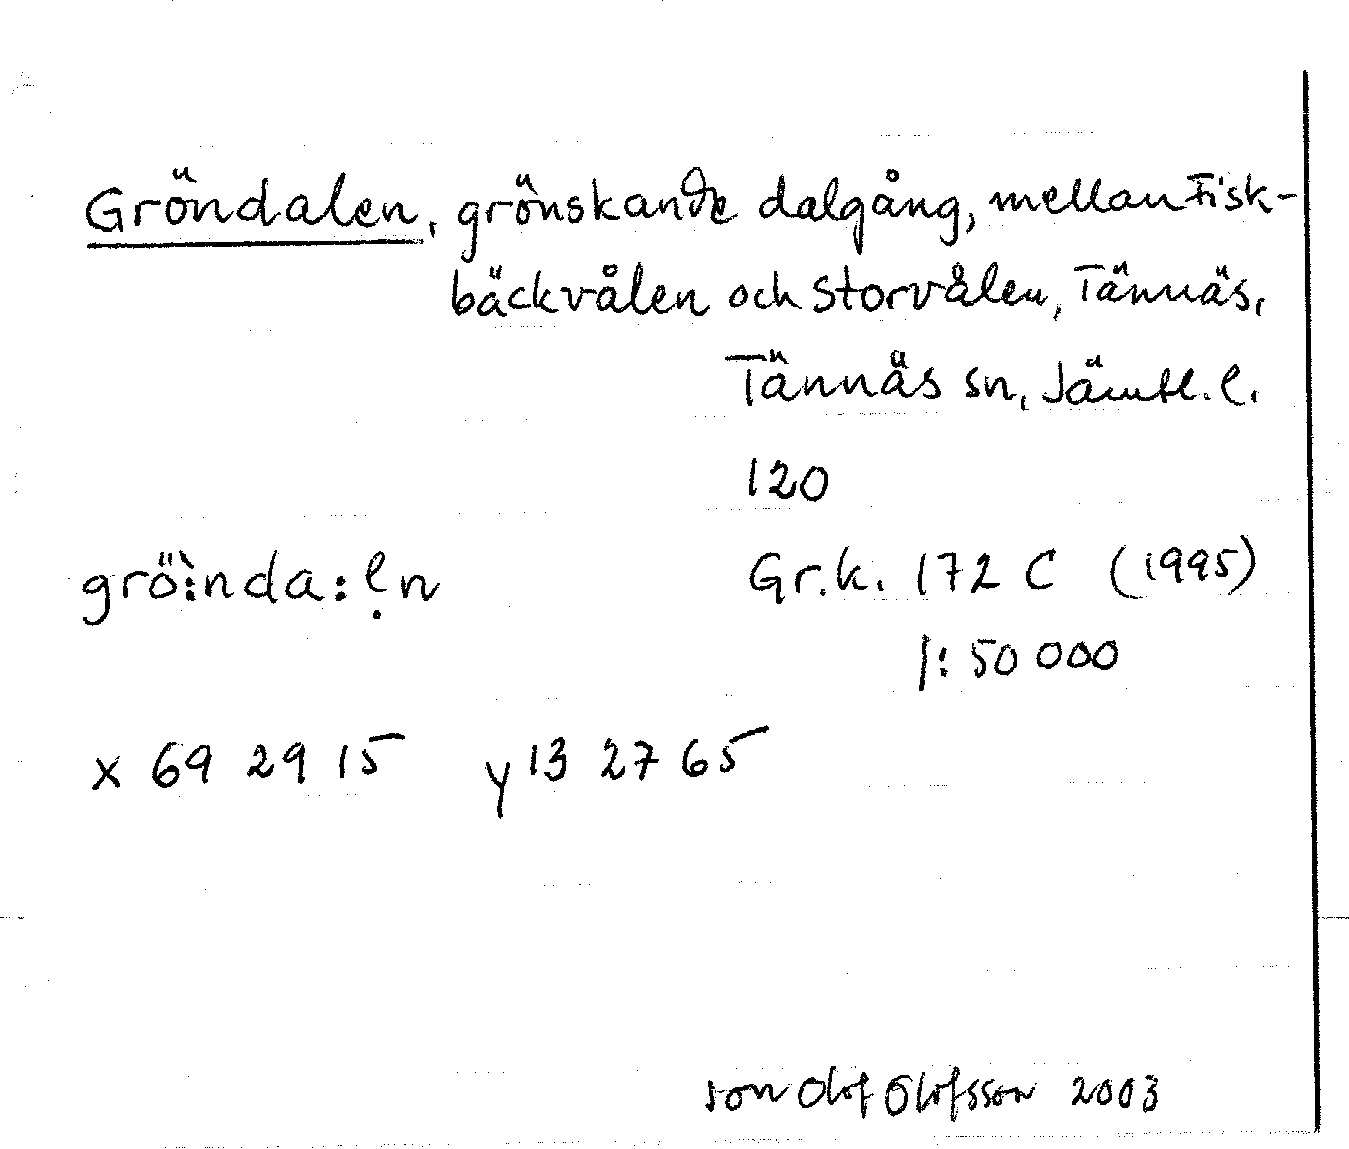 Gröndalen, grönskande dalgång, mellan Fisk-
bäckvålen och Storvålen, Tännäs,
Tännäs sn, Jämtl. l.
120
grö̀:nda:ḷn Gr.k. 172 C (1995)
1:50 000
x 69 29 15 y 13 27 65
Jon Olof Olofsson 2003